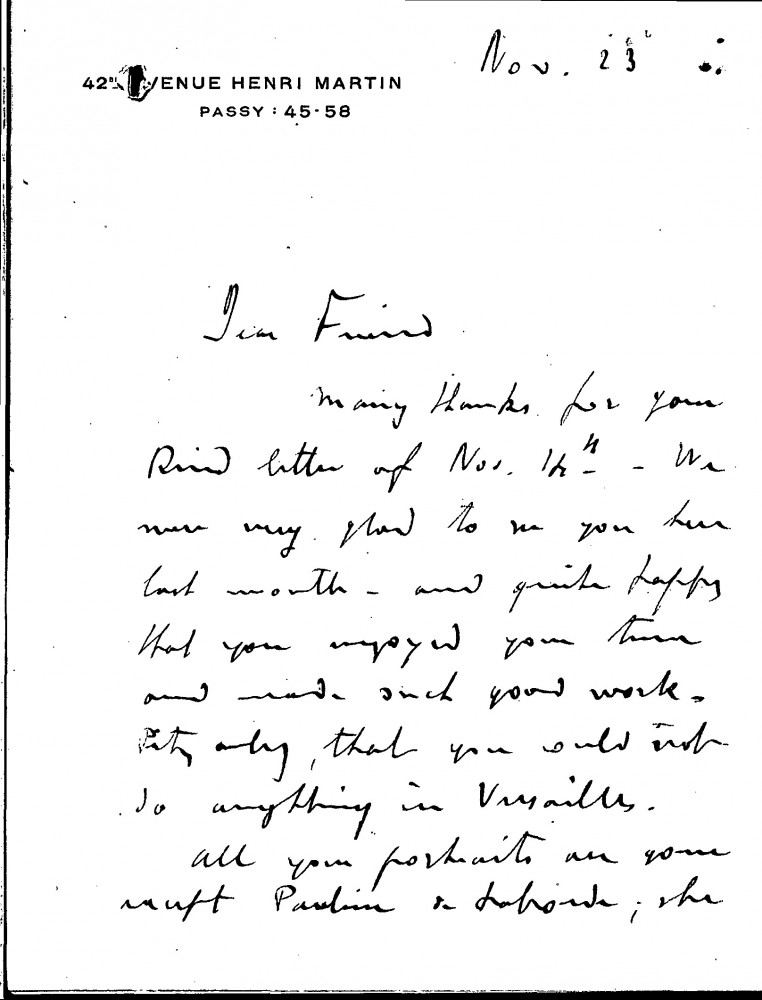 Nov. 23
42 AVENUE HENRI MARTIN
PASSY : 45-58
Dear Friend
Many thanks for your
kind letter of Nov. 14th - We
were very glad to see you here
last month - and quite happy
that you enjoyed your time
and made such good work.
Pity only, that you could not
do anything in Versailles.
All your portraits are gone
except Pauline de Laborde ; she